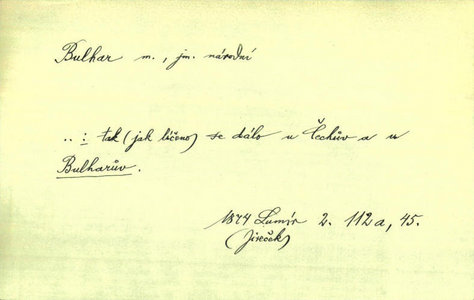 Bulhar m., jm. národní
.. : tak (jak líčeno) se dálo u Čechův a u
Bulharův.
1874 Lumír 2. 112a, 45.
(Jireček)